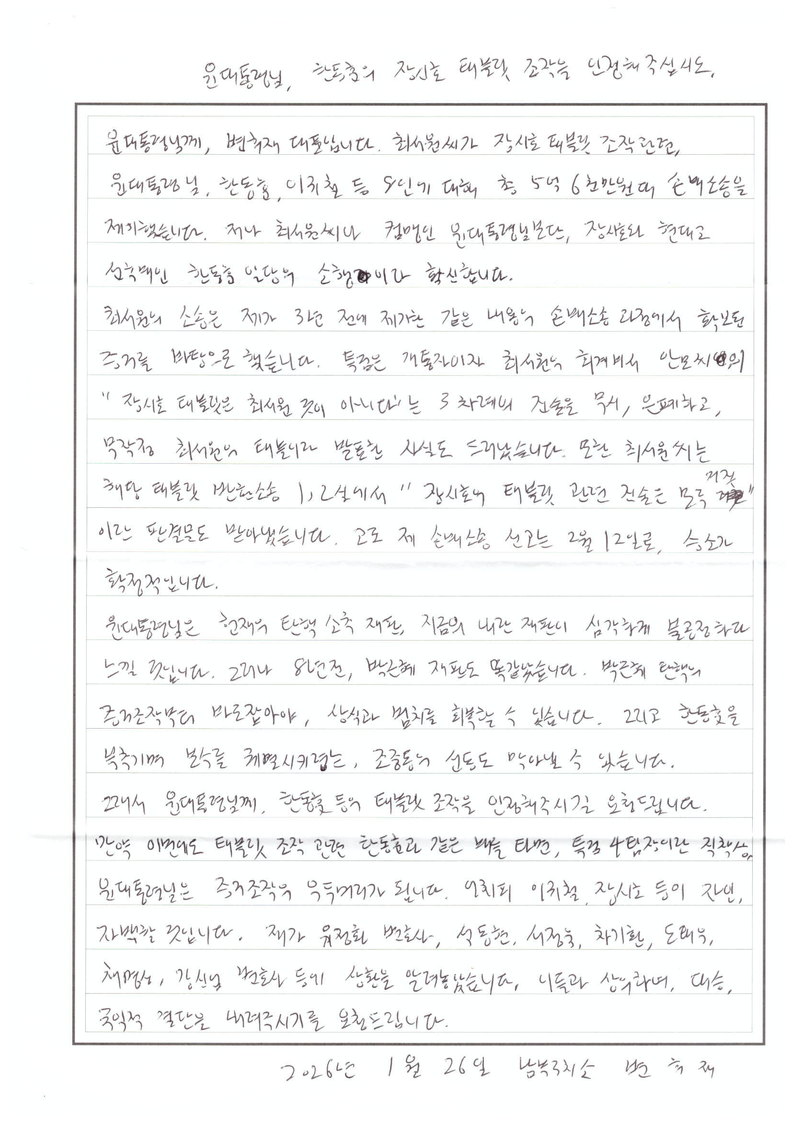 윤대통령님, 한동훈의 장시호 태블릿 조작을 인정해주십시오.
윤대통령님께, 변희재 대표입니다. 최서원씨가 장시호 태블릿 조작 관련,
윤대통령님, 한동훈, 이규철 등 8인에 대해 총 5억 6천만원대 손배소송을
제기했습니다. 저나 최서원씨나 컴맹인 윤대통령님보단, 장시호와 현대고
선후배인 한동훈 일당의 소행이라 확신합니다.
최서원의 소송은 제가 3년 전에 제기한 같은 내용의 손배소송 과정에서 확보된
증거를 바탕으로 했습니다. 특검은 개통자이자 최서원의 회계비서 안모씨의
"장시호 태블릿은 최서원 것이 아니다"는 3차례의 진술을 묵시, 은폐하고,
무작정 최서원의 태블릿이라 발표한 사실도 드러났습니다. 또한 최서원씨는
해당 태블릿 반환소송 1, 2심에서 "장시호의 태블릿 관련 진술은 모두 거짓"
이란 판결문도 받아냈습니다. 고로 제 손배소송 선고는 2월 12일로, 승소가
확정적입니다.
윤대통령님은 헌재의 탄핵 소추 재판, 지금의 내란 재판이 심각하게 불공정하다
느낄 것입니다. 그러나 8년전, 박근혜 재판도 똑같았습니다. 박근혜 탄핵의
증거조작부터 바로잡아야, 상식과 법치를 회복할 수 있습니다. 그리고 한동훈을
부추기며 보수를 궤멸시키려는, 조중동의 선동도 막아낼 수 있습니다.
그래서 윤대통령님께, 한동훈 등의 태블릿 조작을 인정해주시길 요청드립니다.
만약 이번에도 태블릿 조작 관련 한동훈과 같은 배를 타면, 특검 4팀장이란 직책상,
윤대통령님은 증거조작의 우두머리가 됩니다. 어차피 이규철, 장시호 등이 자인,
자백할 것입니다. 제가 유정화 변호사, 석동현, 서정욱, 차기환, 도태우,
채명성, 강신업 변호사 등에 상황을 알려놓았습니다, 이들과 상의하며, 대승,
국익적 결단을 내려주시기를 요청드립니다.
2026년 1월 26일 남부구치소 변희재